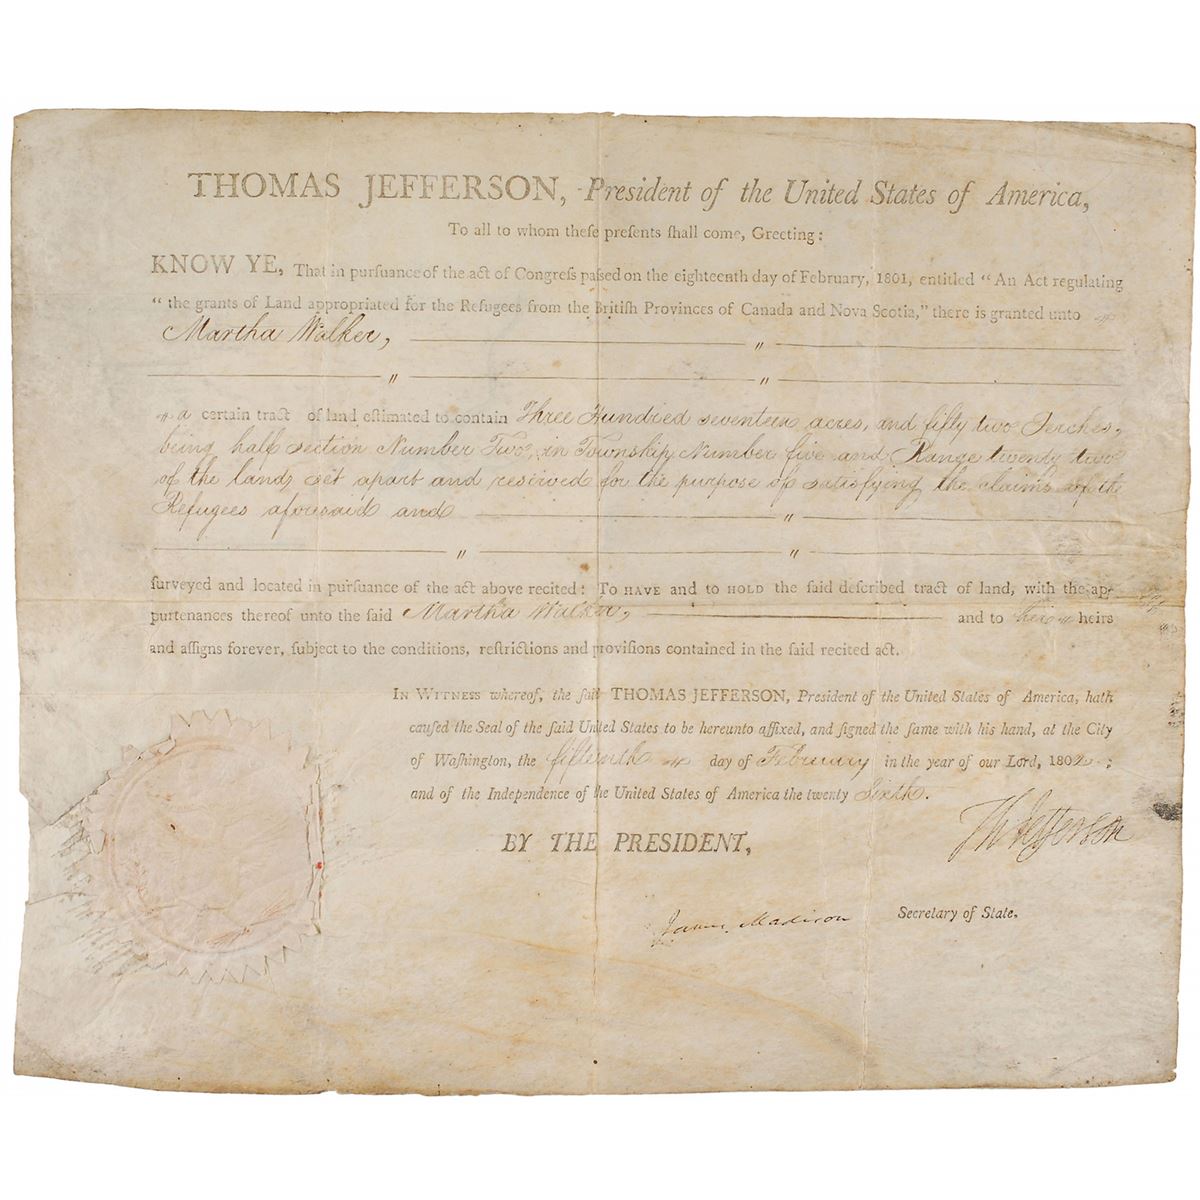 THOMAS JEFFERSON, President of the United States of America,
To all to whom theſe preſents ſhall come, Greeting:
KNOW YE, That in purſuance of the act of Congreſs paſſed on the eighteenth day of February, 1801, entitled "An Act regulating
"the grants of Land appropriated for the Refugees from the British Provinces of Canada and Nova Scotia," there is granted unto "
Martha Walker, "
" "
" a certain tract of land eſtimated to contain Three Hundred seventeen acres, and fifty two Perches,
being half section Number Two, in Township Number five and Range twenty two
of the lands set apart and reserved for the purpose of satisfying the claims of the
Refugees aforesaid and "
" "
ſurveyed and located in purſuance of the act above recited: To HAVE and to HOLD the ſaid deſcribed tract of land, with the ap-
purtenances thereof unto the ſaid Martha Walker, and to her " heirs
and aſſigns forever, ſubject to the conditions, reſtrictions and proviſions contained in the ſaid recited act.
IN WITNESS whereof, the ſaid THOMAS JEFFERSON, Preſident of the United States of America, hath
cauſed the Seal of the ſaid United States to be hereunto affixed, and ſigned the ſame with his hand, at the City
of Waſhington, the fifteenth " day of February in the year of our Lord, 1802 ;
and of the Independence of the United States of America the twenty Sixth.
Th Jefferson
BY THE PRESIDENT,
James Madison Secretary of State.